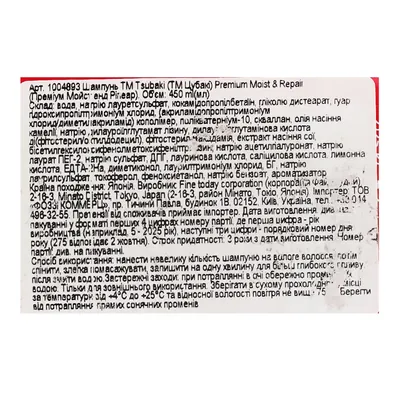 Арт. 1004893 Шампунь ТМ Tsubaki (ТМ Цубакі) Premium Moist & Repair
(Преміум Мойст енд Ріпеар). Об'єм: 450 ml(мл)
Склад: вода, натрію лауретсульфат, кокамідопропілбетаїн, гліколю дистеарат, гуар
гідроксипропілтримоніум хлорид, (акриламідопропілтримоніум
хлорид/диметилакриламід) кополімер, полікватерніум-10, сквалан, олія насіння
камелії, натрію дилауроїлглутамат лізину, дилауроїлглутамінова кислота
ді(фітостерил/октилдодецил), фітостерини соєві,
бісетилгексилоксифенолметоксифенілтриазин, натрію ацетилгіалуронат, натрію
лаурат ПЕГ-2, натрію сульфат, ДПГ, лауринова кислота, саліцилова, лимонна
кислота, ЕДТА-2На, диметилмол, лаурилтримоніум хлорид, натрію
лаурилсульфат, токоферол, феноксиетанол, натрію бензоат, ароматизатор
Країна походження: Японія. Виробник: Fine today corporation (корпорація Файн Тудей)
2-16-3, Minato District, Tokyo, Japan (2-16-3, район Мінато, Токіо, Японія). Імпортер ТОВ
«ФОЗЗІ КОММЕРЦ», пров. Тичини Павла, будинок 1В, 02152, Київ, Україна,
496-32-55. Претензії від споживачів приймає імпортер. Дата виготовлення див. на
пакуванні у форматі перших 4 цифрами номеру партії, де перша цифра - рік
виробництва (наприклад, 5 - 2025 рік), наступні три цифри - порядковий номер дня
року (275 відповідає 2 жовтня). Строк придатності: 3 роки з дати виготовлення. Номер
партії: див. на пакуванні.
Спосіб використання: нанести невелику кількість шампуню на вологе волосся, потім
спінити, злегка помасажувати, залишити на одну хвилину для більш глибокого впливу
після змити водою. Застережні заходи: при потраплянні в очі, негайно промити їх
водою. Тільки для зовнішнього використання. Зберігати в сухому прохолодному місці
за температури від +4°С до +25°С та відносної вологості повітря не вище 75 Берегти
від потрапляння прямих сонячних променів